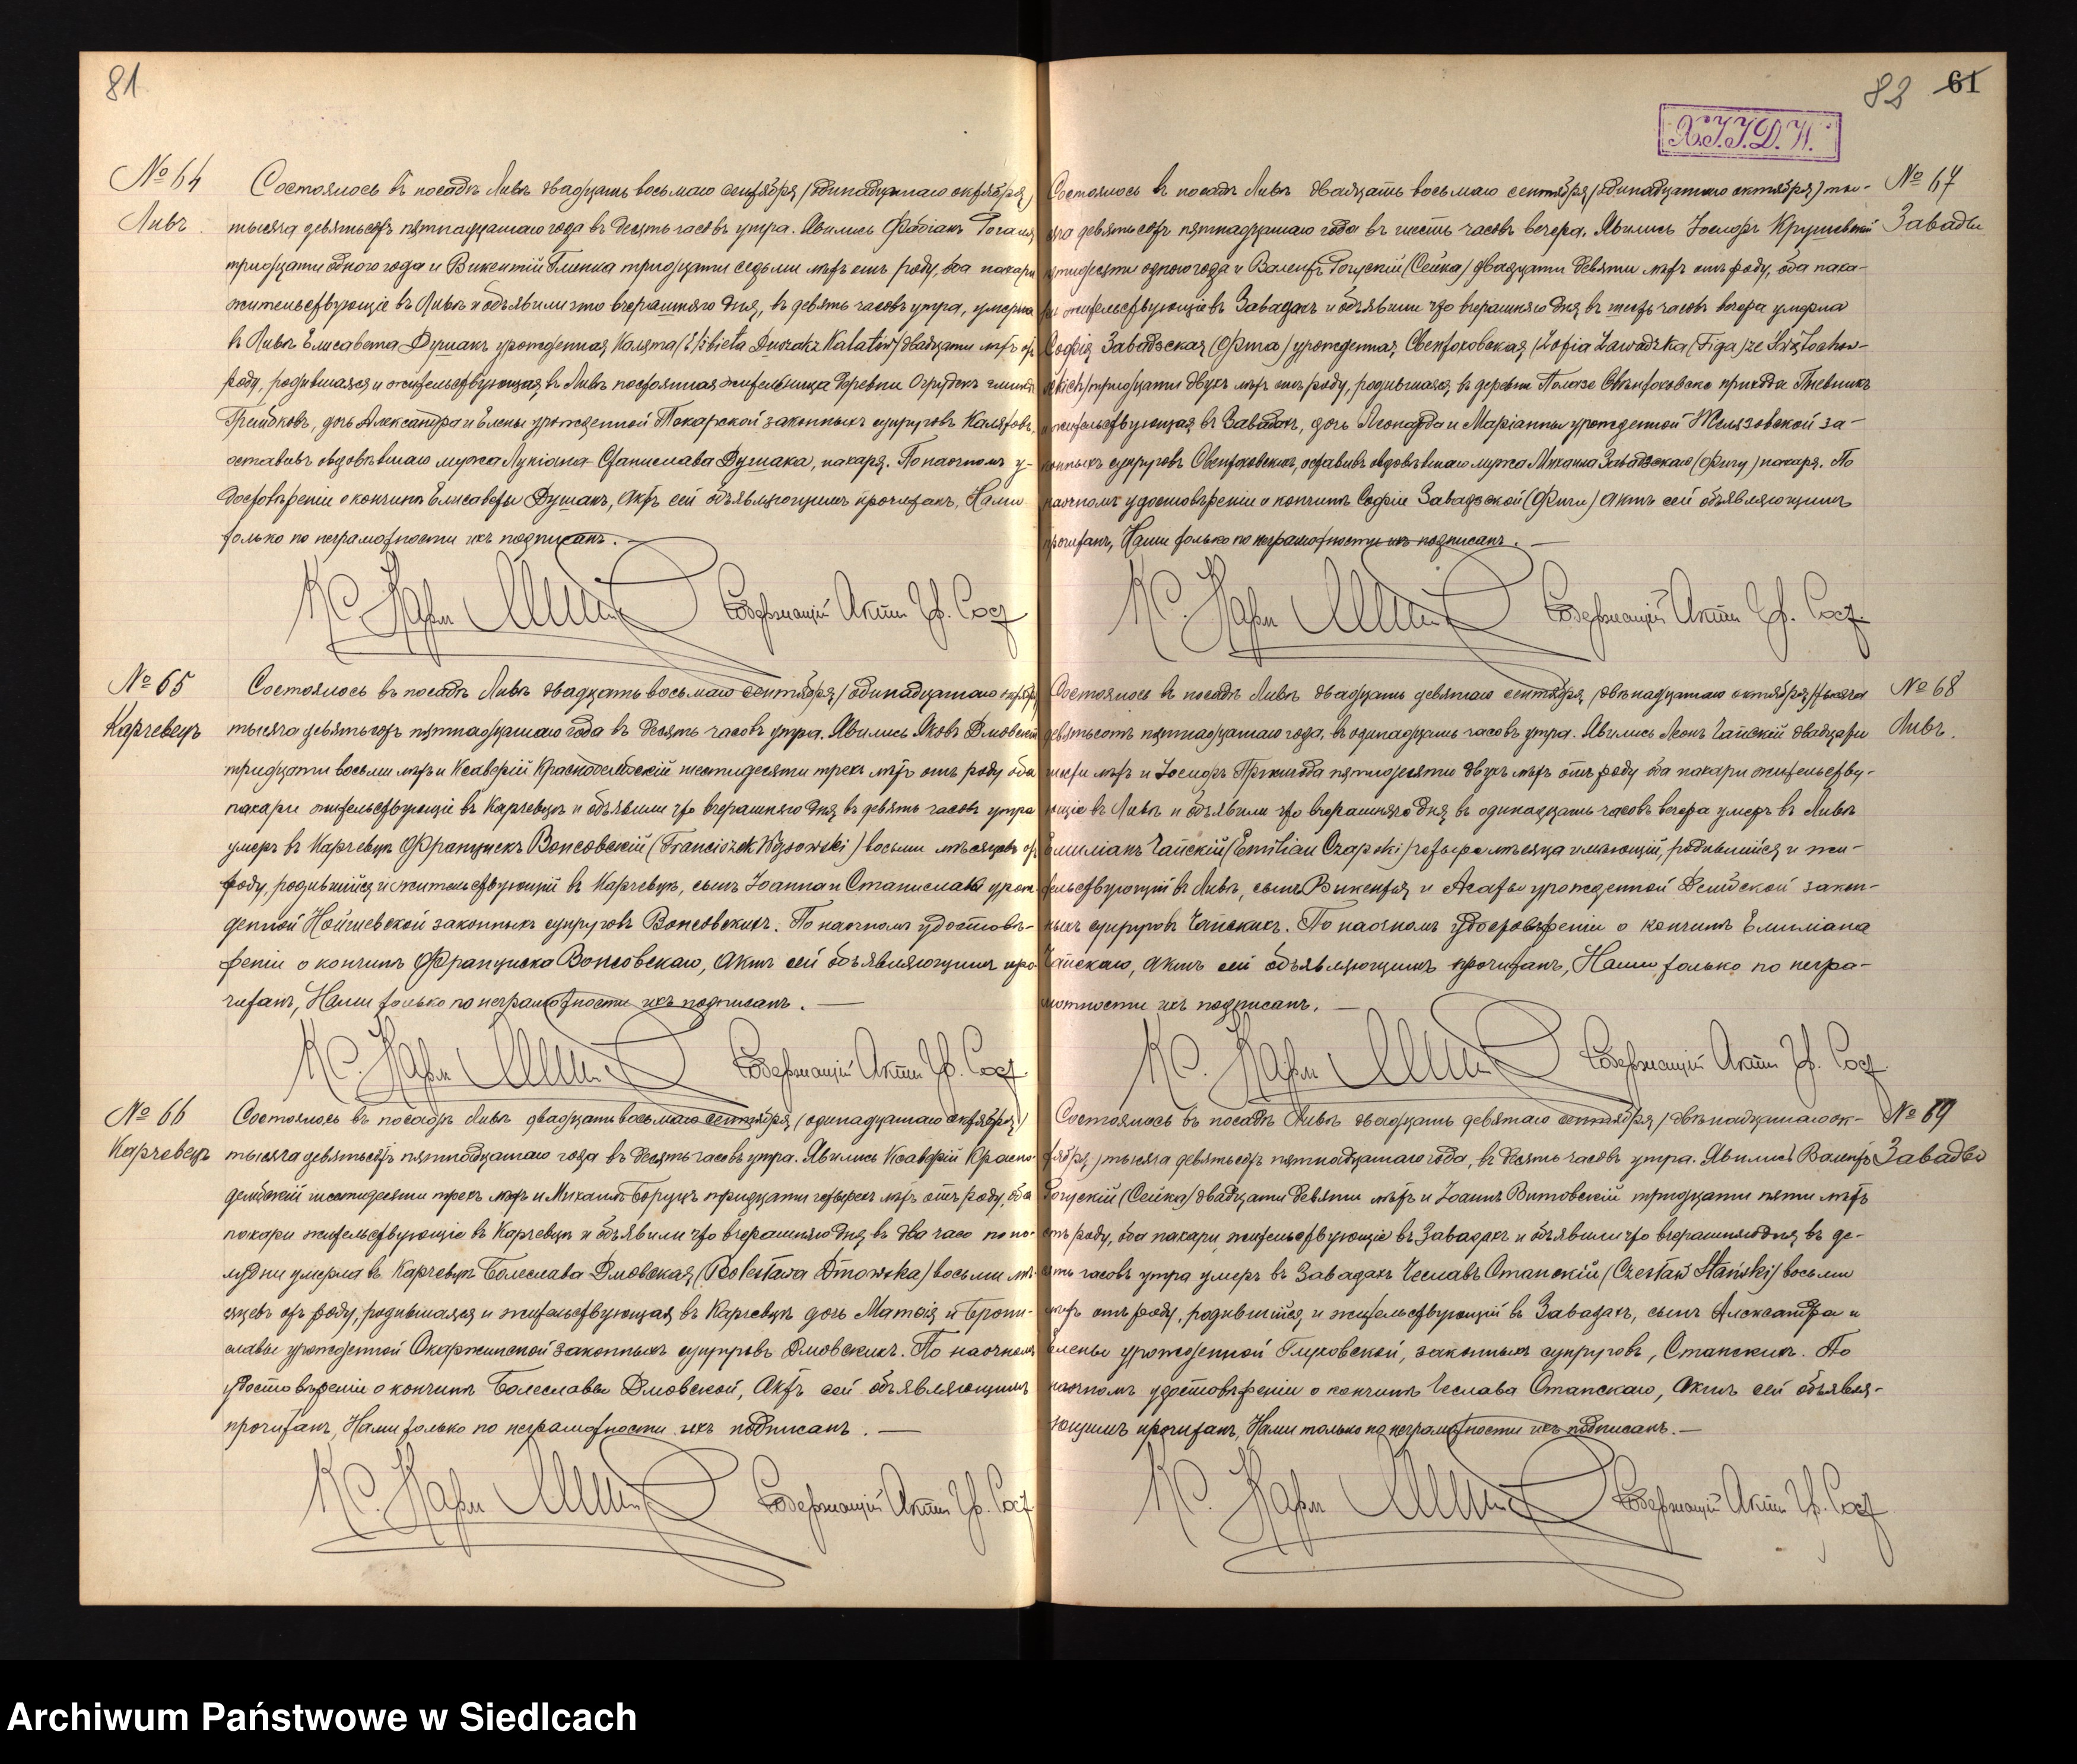 81
№ 64
Ливъ.
Состоялось въ посадѣ Ливѣ двадцать восьмаго сентября /одинадцатаго октября/
тысяча девятьсотъ пятнадцатаго года въ десять часовъ утра. Явились Фабіанъ
тридцати одного года и Викентій Глинка тридцати седьми лѣтъ отъ роду, оба пахари
жительствующіе въ Ливѣ и объявили что вчерашняго дня, въ девять часовъ утра, умерла
въ Ливѣ Елисавета Душакъ урожденная Калята /Elżbieta Duszak z Kalatów/ двадцати лѣтъ отъ
роду, родившаяся и жительствующая въ Ливѣ постоянная жительница деревни Огрудекъ гмины
Гренбковъ, дочь Александра и Елены урожденной Токарской законныхъ супруговъ Калятовъ,
оставивъ овдовѣвшаго мужа Лукіана-Станислава Душака, пахаря. По наочномъ у-
достовѣреніи о кончинѣ Елисаветы Душакъ, Актъ сей объявляющимъ прочитанъ, Нами
только по неграмотности ихъ подписанъ. —
Кс. Карл Содержащій Акты Гр. Сост.
№ 65
Карчевецъ
Состоялось въ посадѣ Ливѣ двадцать восьмаго сентября /одинадцатаго октября/
тысяча девятьсотъ пятнадцатаго года въ десять часовъ утра. Явились Яковъ Дмовскій
тридцати восьми лѣтъ и Ксаверій Краснодембскій шестидесяти трехъ лѣтъ отъ роду оба
пахари жительствующіе въ Карчевцѣ и объявили что вчерашняго дня въ девять часовъ утра
умеръ въ Карчевцѣ Францискъ Вонсовскій /Franciszek Wąsowski/ восьми мѣсяцовъ отъ
роду, родившійся и жительствующій въ Карчевцѣ, сынъ Іоанна и Станиславы урож-
денной Нойшевской законныхъ супруговъ Вонсовскихъ. По наочномъ удостовѣ-
реніи о кончинѣ Франциска Вонсовскаго, Актъ сей объявляющимъ про-
читанъ, Нами только по неграмотности ихъ подписанъ. —
Кс. Карл Содержащій Акты Гр. Сост.
№ 66
Карчевецъ
Состоялось въ посадѣ Ливѣ двадцать восьмаго сентября /одинадцатаго октября/
тысяча девятьсотъ пятнадцатаго года въ десять часовъ утра. Явились Ксаверій Красно-
дембскій шестидесяти трехъ лѣтъ и Михаилъ Боруцъ тридцати четырехъ лѣтъ отъ роду, оба
пахари жительствующіе въ Карчевцѣ и объявили что вчерашняго дня въ два часа по по-
лудни умерла въ Карчевцѣ Болеслава Дмовская /Bolesława Dmowska/ восьми мѣ-
сяцевъ отъ роду, родившаяся и жительствующая въ Карчевцѣ дочь Матвія и Брони-
славы урожденной Скаржинской законныхъ супруговъ Дмовскихъ. По наочномъ
удостовѣреніи о кончинѣ Болеславы Дмовской, Актъ сей объявляющимъ
прочитанъ, Нами только по неграмотности ихъ подписанъ. —
Кс. Карл Содержащій Акты Гр. Сост.
82 61
№ 67
Завады
Состоялось въ посадѣ Ливѣ двадцать восьмаго сентября /одинадцатаго октября/ ты-
сяча девятьсотъ пятнадцатаго года въ шесть часовъ вечера. Явились Іосифъ Крушевскій
пятидесяти одного года и Валентъ Рогускій (Сейка) двадцати девяти лѣтъ отъ роду, оба паха-
ри жительствующіе въ Завадахъ и объявили что вчерашняго дня въ шесть часовъ вечера умерла
Софія Завадзская (Фига) урожденная Свентоховская /Zofia Zawadzka (Figa) ze Świętochow-
skich/ тридцати двухъ лѣтъ отъ роду, родившаяся въ деревнѣ Полазе Свентоховске прихода Гневникъ
и жительствующая въ Завадахъ, дочь Леонарда и Маріанны урожденной Желязовской за-
конныхъ супруговъ Свентоховскихъ, оставивъ овдовѣвшаго мужа Михаила Завадзскаго (Фигу) пахаря. По
наочномъ удостовѣреніи о кончинѣ Софіи Завадзской (Фиги) Актъ сей объявляющимъ
прочитанъ, Нами только по неграмотности ихъ подписанъ. —
Кс. Карл Содержащій Акты Гр. Сост.
№ 68
Ливъ.
Состоялось въ посадѣ Ливѣ двадцать девятаго сентября /двѣнадцатаго октября/ тысяча
девятьсотъ пятнадцатаго года, въ одинадцать часовъ утра. Явились Леонъ Чапскій двадцати
шести лѣтъ и Іосифъ пятидесяти двухъ лѣтъ отъ роду оба пахари жительству-
ющіе въ Ливѣ и объявили что вчерашняго дня въ одинадцать часовъ вечера умеръ въ Ливѣ
Емиліанъ Чапскій /Emilian Czapski/ четыре мѣсяца имѣющій, родившійся и жи-
тельствующій въ Ливѣ, сынъ Викентія и Агаты урожденной законн-
ныхъ супруговъ Чапскихъ. По наочномъ удостовѣреніи о кончинѣ Емиліана
Чапскаго, Актъ сей объявляющимъ прочитанъ, Нами только по негра-
мотности ихъ подписанъ. —
Кс. Карл Содержащій Акты Гр. Сост.
№ 69
Завады
Состоялось въ посадѣ Ливѣ двадцать девятаго сентября /двѣнадцатаго ок-
тября/ тысяча девятьсотъ пятнадцатаго года, въ десять часовъ утра. Явились Валентъ
Рогускій (Сейка) двадцати девяти лѣтъ и Іоаннъ Витовскій тридцати пяти лѣтъ
отъ роду, оба пахари, жительствующіе въ Завадахъ и объявили что вчерашняго дня въ де-
сять часовъ утра умеръ въ Завадахъ Чеславъ Станскій /Czesław Stański/ восьми
лѣтъ отъ роду, родившійся и жительствующій въ Завадахъ, сынъ Александра и
Елены урожденной Глуховской, законныхъ супруговъ, Станскихъ. По
наочномъ удостовѣреніи о кончинѣ Чеслава Станскаго, Актъ сей объявля-
ющимъ прочитанъ, Нами только по неграмотности ихъ подписанъ. —
Кс. Карл Содержащій Акты Гр. Сост.
Archiwum Państwowe w Siedlcach